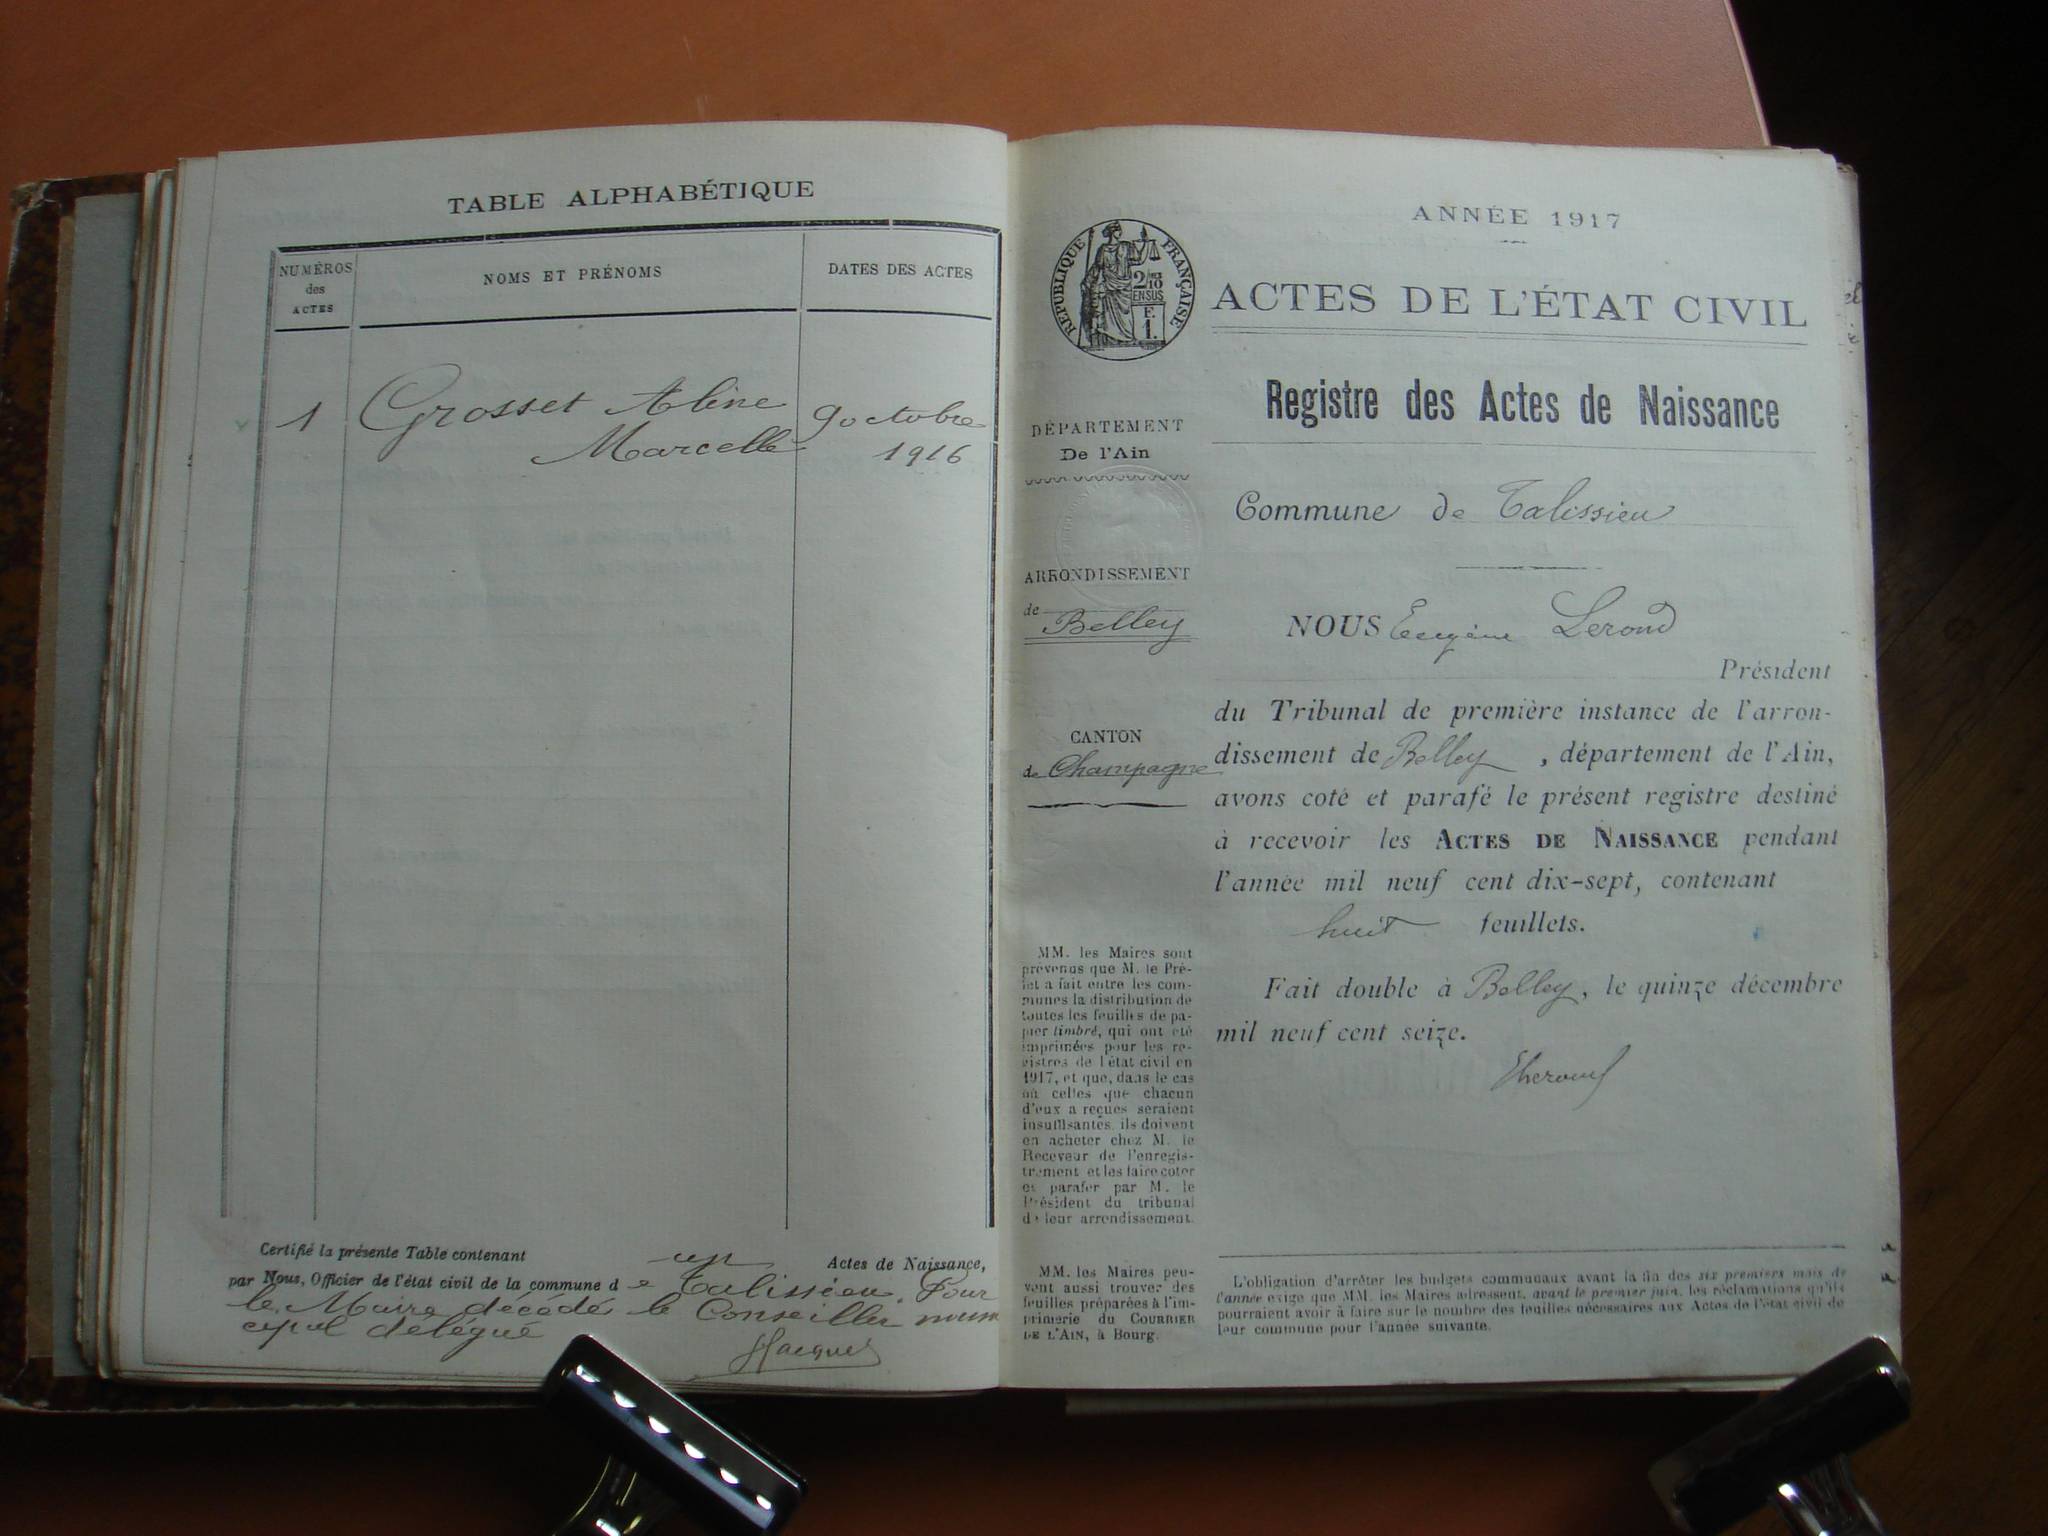 TABLE ALPHABÉTIQUE
NUMÉROS
des
ACTES
NOMS ET PRÉNOMS
DATES DES ACTES
1 Grosset Aline 9 octobre
Marcelle 1916
Certifié la présente Table contenant un Actes de Naissance,
par Nous, Officier de l'état civil de la commune de Talissieu. Pour
le Maire décédé le Conseiller muni
cipal délégué
Jacquet
ANNÉE 1917
RÉPUBLIQUE FRANÇAISE
2/10
EN SUS
F.
1.
ACTES DE L'ÉTAT CIVIL
Registre des Actes de Naissance
DÉPARTEMENT
De l'Ain
ARRONDISSEMENT
de Belley
CANTON
de Champagne
MM. les Maires sont
prévenus que M. le Pré-
fet a fait entre les com-
munes la distribution de
toutes les feuilles de pa-
pier timbré, qui ont été
imprimées pour les re-
gistres de l'état civil en
1917, et que, dans le cas
où celles que chacun
d'eux a reçues seraient
insuffisantes, ils doivent
en acheter chez M. le
Receveur de l'enregis-
trement et les faire coter
et parafer par M. le
Président du tribunal
de leur arrondissement.
MM. les Maires peu-
vent aussi trouver des
feuilles préparées à l'im-
primerie du COURRIER
DE L'AIN, à Bourg.
Commune de Talissieu
NOUS Eugène Lerond
Président
du Tribunal de première instance de l'arron-
dissement de Belley, département de l'Ain,
avons coté et parafé le présent registre destiné
à recevoir les ACTES DE NAISSANCE pendant
l'année mil neuf cent dix-sept, contenant
huit feuillets.
Fait double à Belley, le quinze décembre
mil neuf cent seize.
L'obligation d'arrêter les budgets communaux avant la fin des six premiers mois de
l'année exige que MM. les Maires adressent, avant le premier juin, les réclamations qu'ils
pourraient avoir à faire sur le nombre des feuilles nécessaires aux Actes de l'état civil de
leur commune pour l'année suivante.